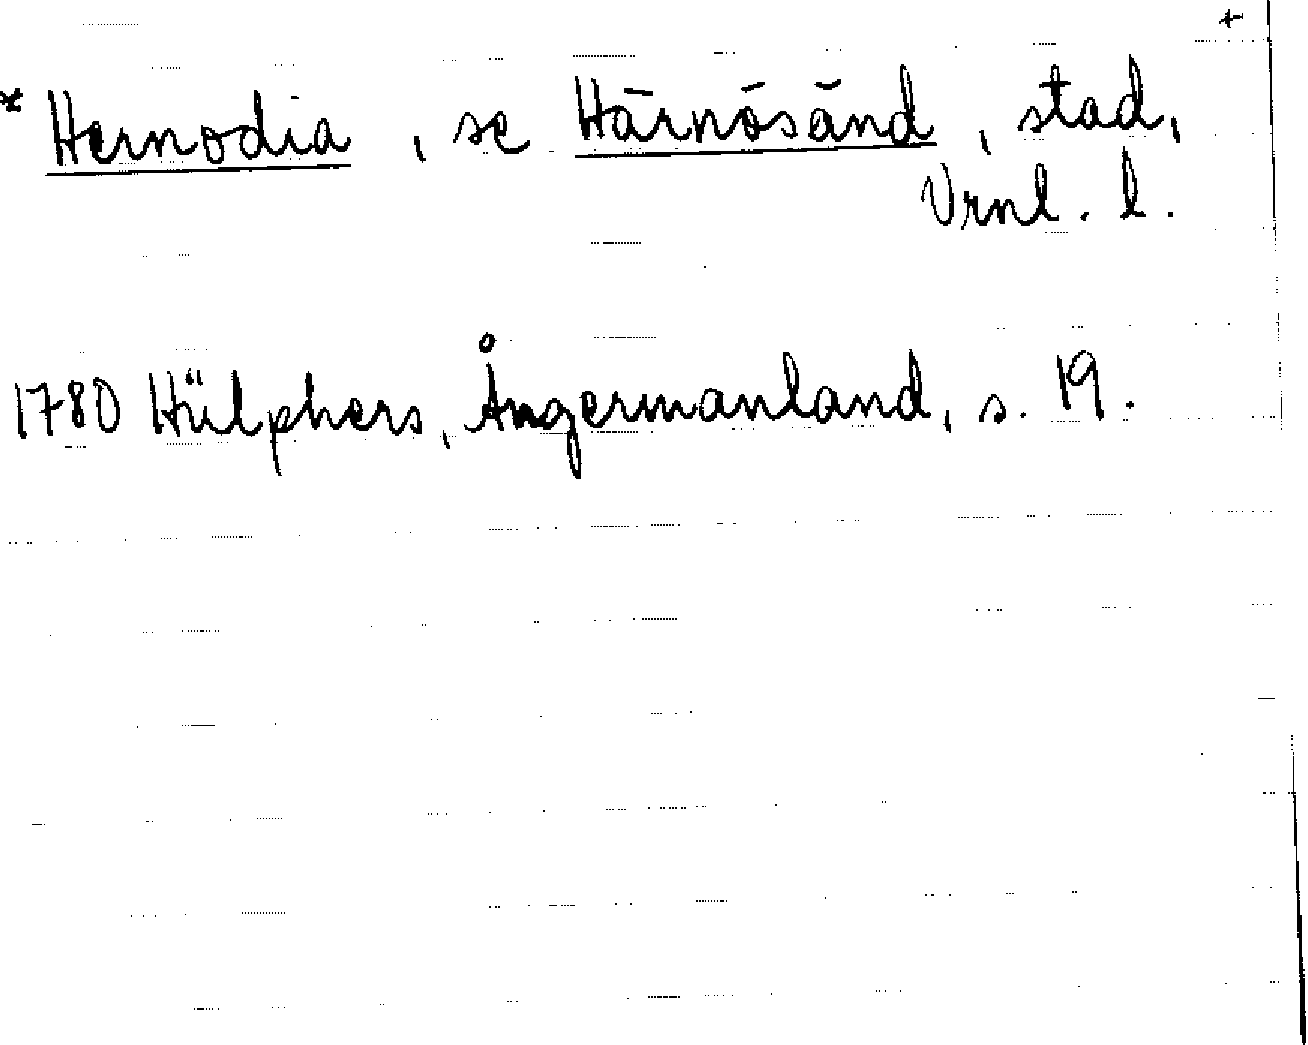 +
* Hernodia, se Härnösānd, stad,
Vrnl. l.
1780 Hülphers, Ångermanland, s. 19.